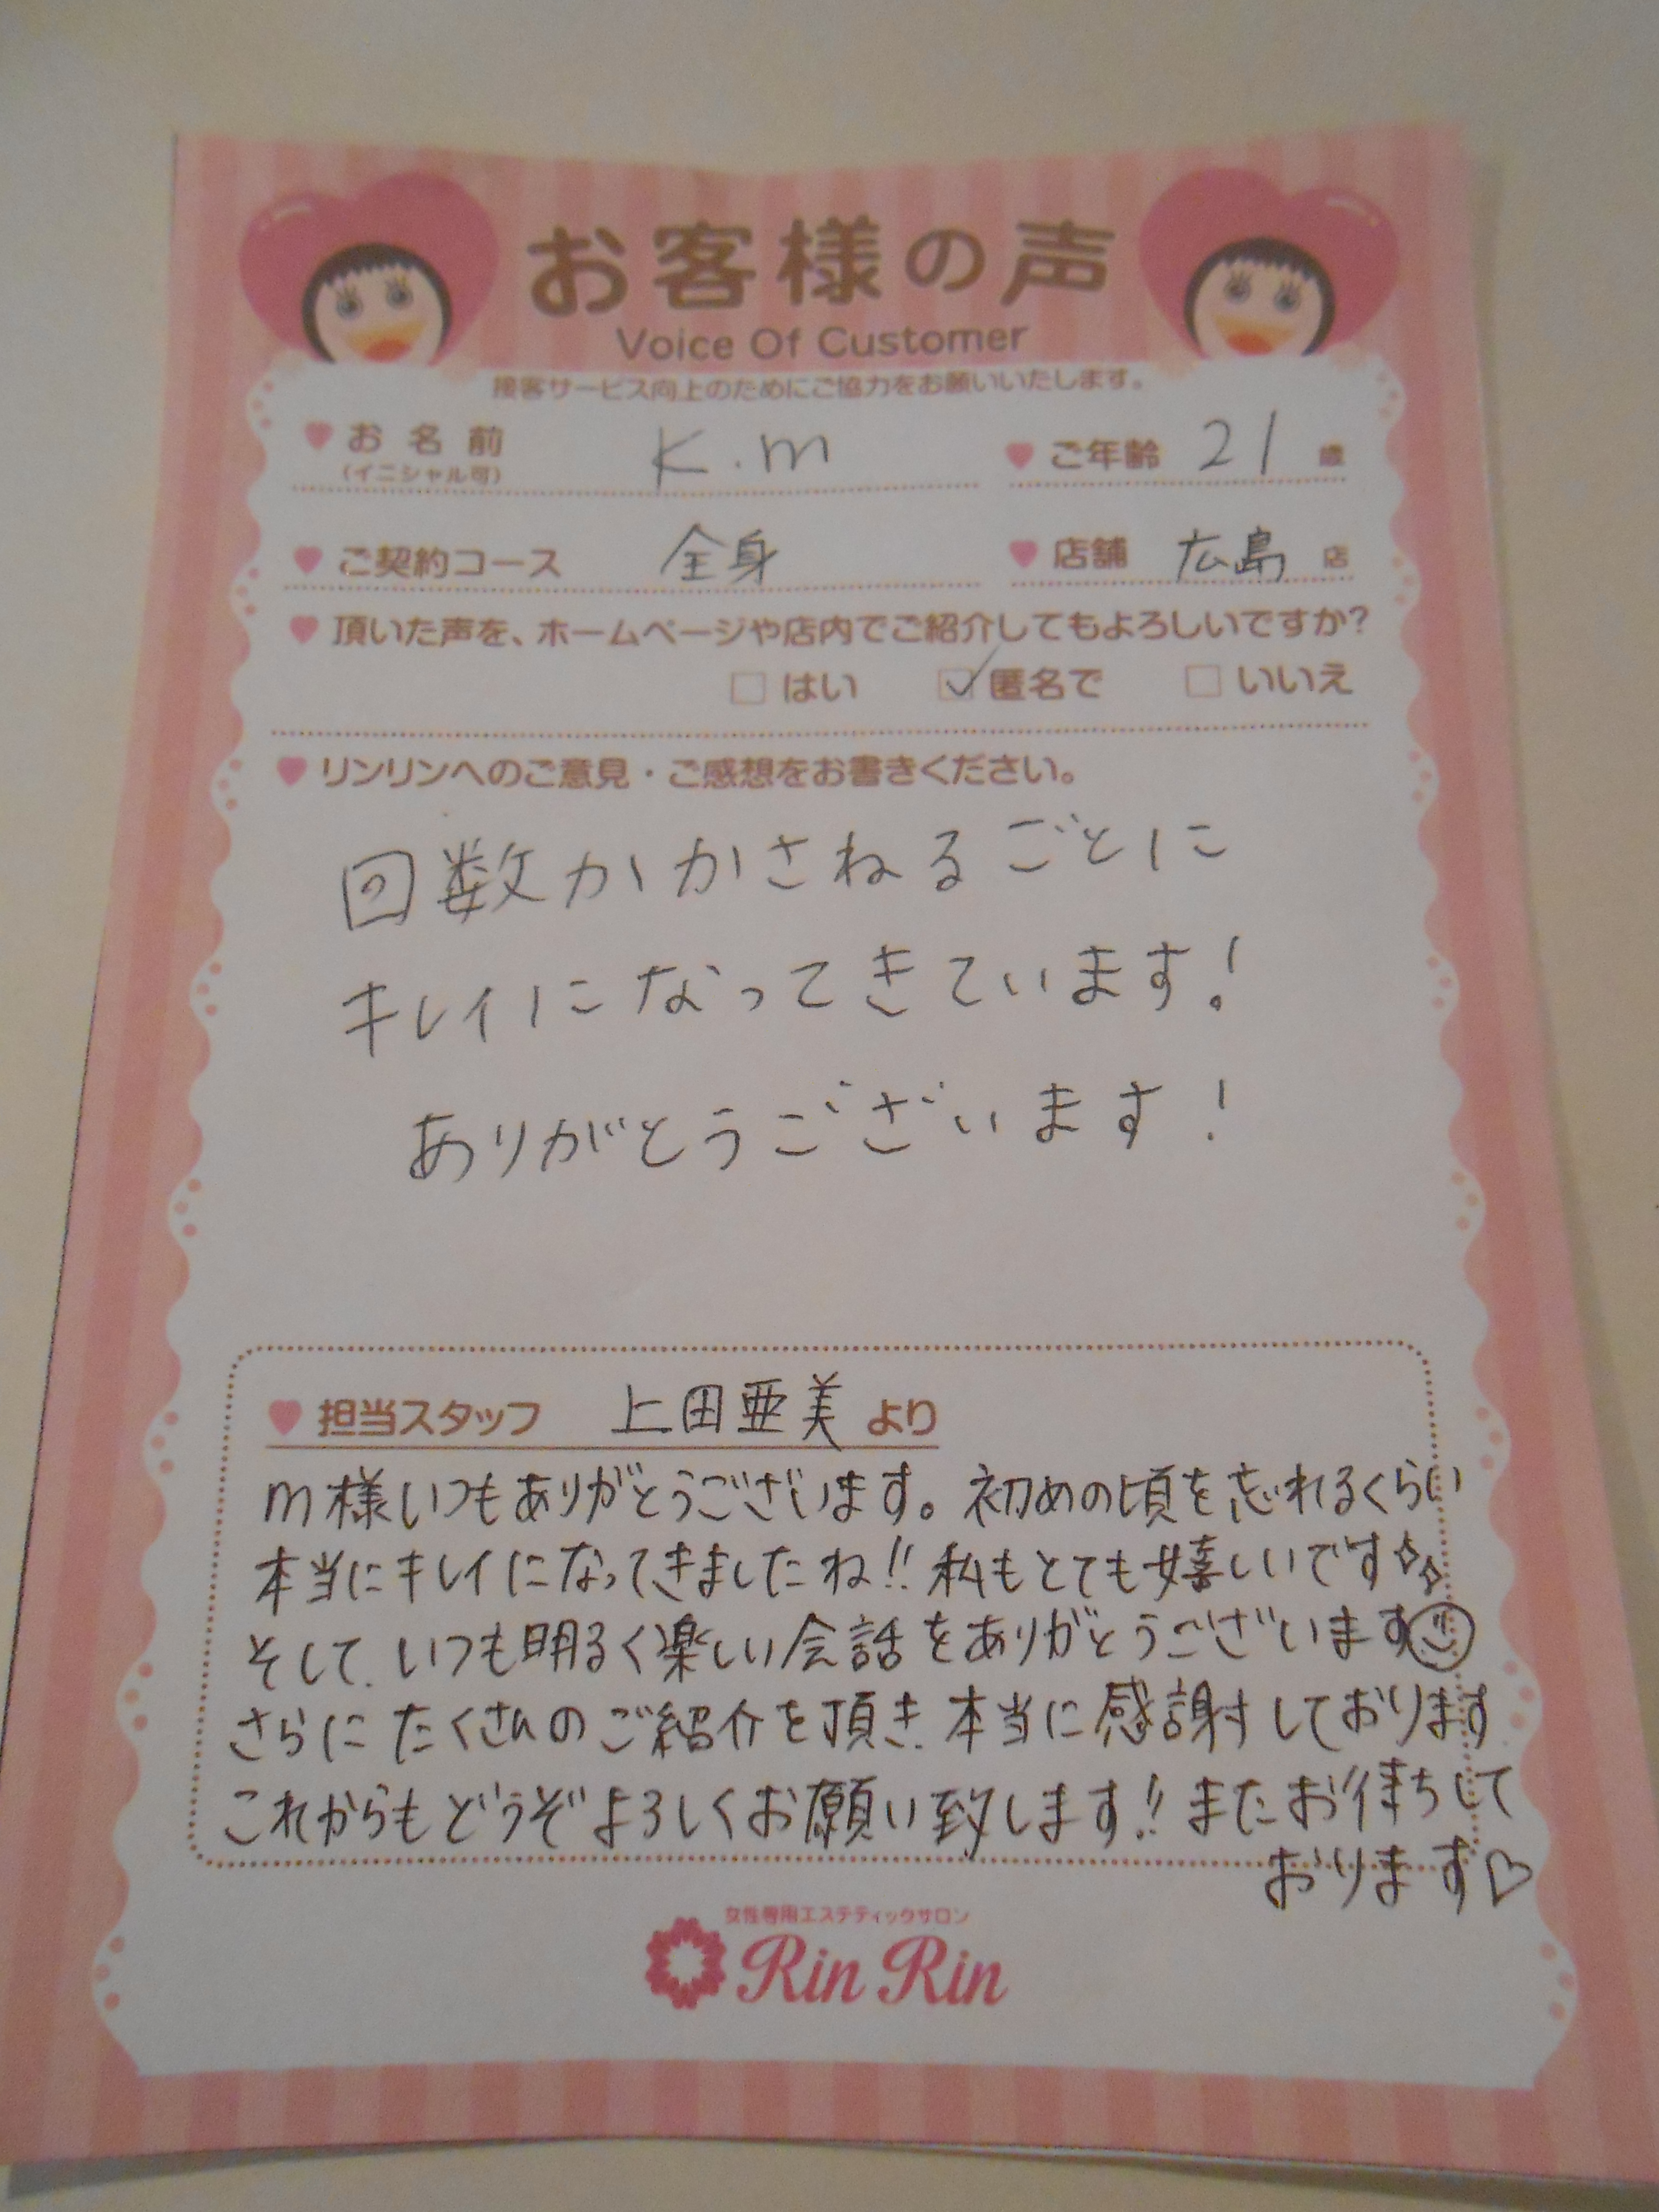 お客様の声
Voice Of Customer
接客サービス向上のためにご協力をお願いいたします。
お名前 K.m ご年齢 21 歳
(イニシャル可)
ご契約コース 全身 店舗 広島 店
頂いた声を、ホームページや店内でご紹介してもよろしいですか?
はい 匿名で いいえ
リンリンへのご意見・ご感想をお書きください。
回数かかさねるごとに
キレイになってきています!
ありがとうございます!
担当スタッフ 上田亜美 より
m様いつもありがとうございます。初めの頃を忘れるくらい
本当にキレイになってきましたね!!私もとても嬉しいです
そして、いつも明るく楽しい会話をありがとうございます
さらにたくさんのご紹介を頂き、本当に感謝しております
これからもどうぞよろしくお願い致します!!またお待ちして
おります♡
女性専用エステティックサロン
Rin Rin